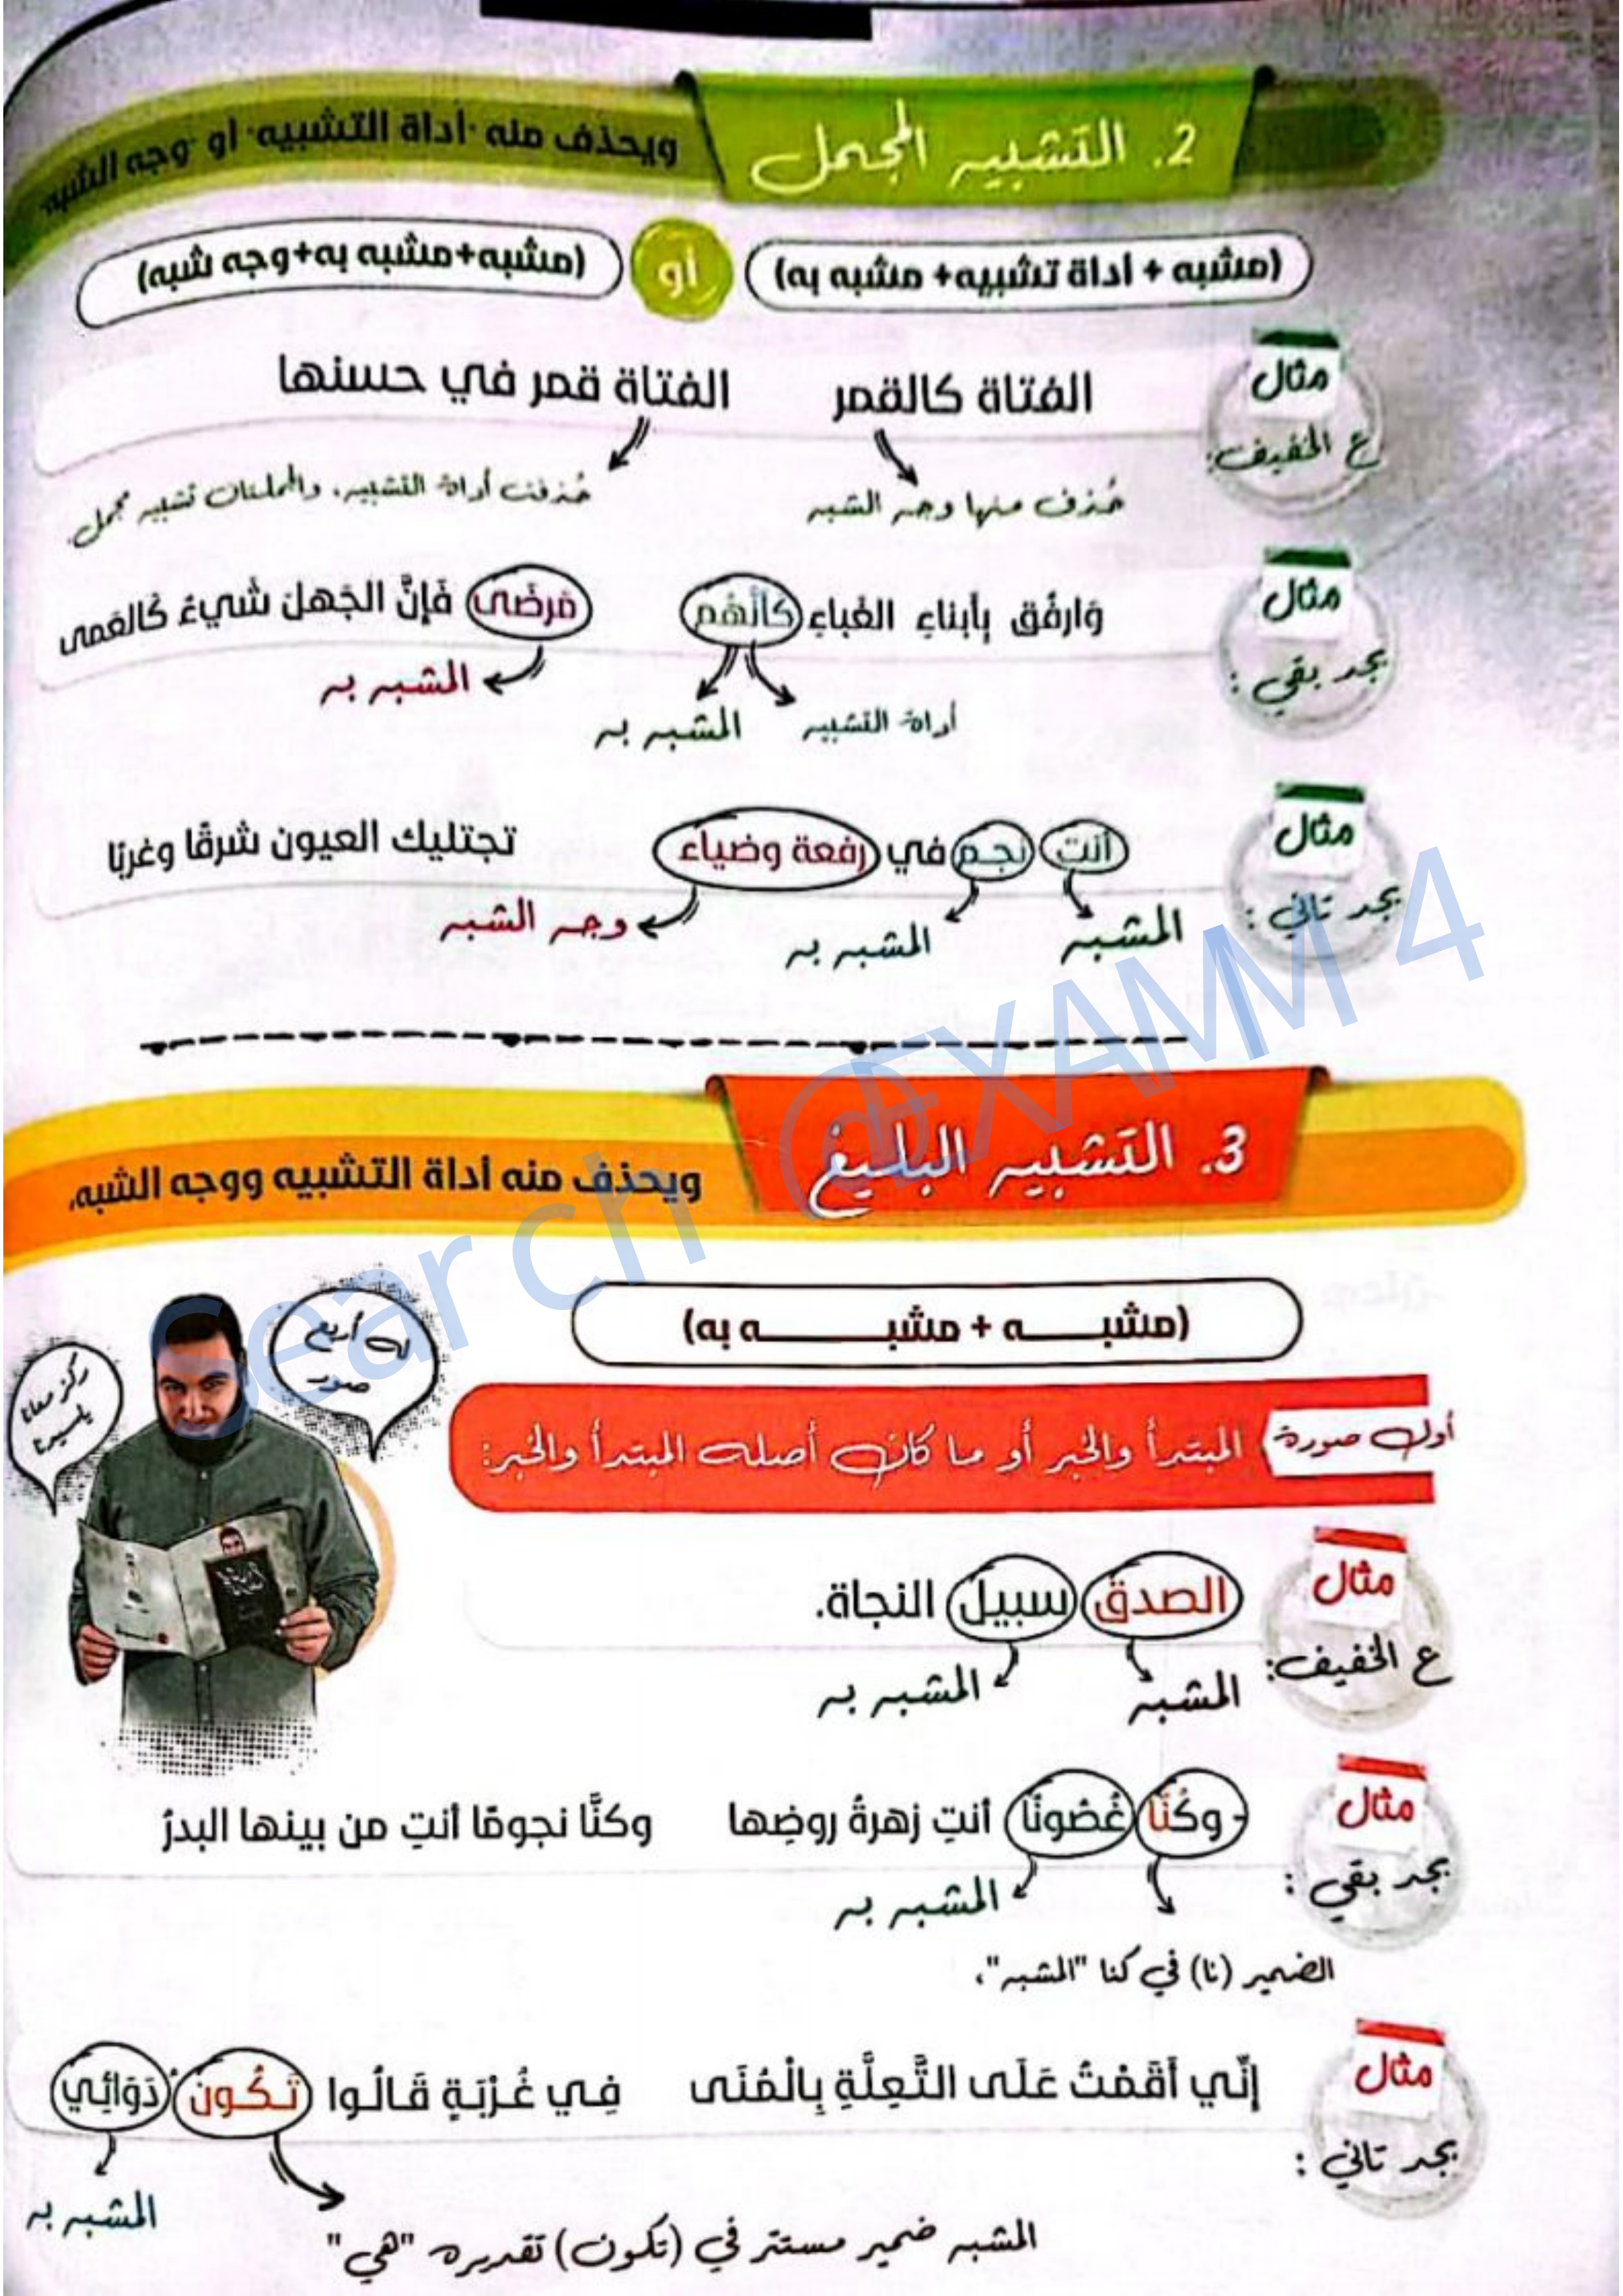 2. التشبيه المجمل
ويحذف منه "أداة التشبيه" أو "وجه الشبه"
(مشبه + أداة تشبيه+ مشبه به)
أو
(مشبه+مشبه به+وجه شبه)
مثال
ع الخفيف:
الفتاة كالقمر
الفتاة قمر في حسنها
حُذف منها وجه الشبه
حُذفت أداة التشبيه، والجملتان تشبيه مجمل.
مثال
بجد بقي :
وَارفُق بِأبناءِ الغَباءِ كَأَنَّهُم مَرضَى فَإِنَّ الجَهلَ شَيءٌ كَالعَمى
أداة التشبيه
المشبه به
المشبه به
مثال
بجد تاني :
أنت نجم في رفعة وضياء تجتليك العيون شرقًا وغربًا
المشبه
المشبه به
وجه الشبه
3. التشبيه البليغ
ويحذف منه أداة التشبيه ووجه الشبه.
(مشبــــه + مشبــــــه به)
له أربع
صور
ركز معانا
أول صورة
المبتدأ والخبر أو ما كان أصله المبتدأ والخبر:
مثال
ع الخفيف:
الصدق سبيل النجاة.
المشبه
المشبه به
مثال
بجد بقي :
- وكُنَّا غُصُونًا أنتِ زهرةُ روضِها وكنَّا نجومًا أنتِ من بينها البدرُ
المشبه به
الضمير (نا) في كنا "المشبه".
مثال
بجد تاني :
إِنِّي أَقَمْتُ عَلَى التَّعِلَّةِ بِالْمُنَى فِي غُرْبَةٍ قَالُوا تَكُونُ دَوَائِي
المشبه به
المشبه ضمير مستتر في (تكون) تقديره "هي"
Search @EXAMM 4